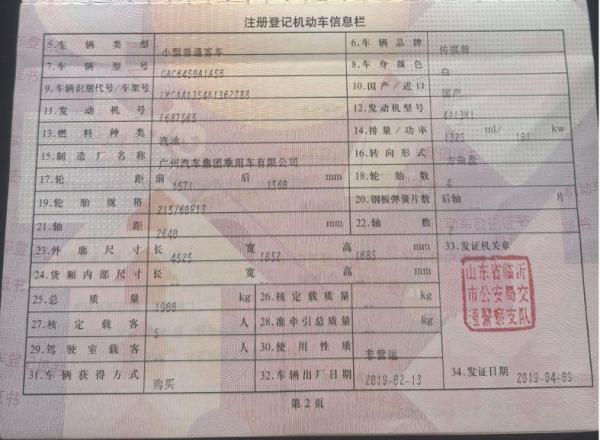 注册登记机动车信息栏
5.车辆类型 小型普通客车 6.车辆品牌 传祺牌
7.车辆型号 GAC6450A1A5B 8.车身颜色 白
9.车辆识别代号/车架号 10.国产/进口 国产
11.发动机号 F687565 12.发动机型号
13.燃料种类 汽油 14.排量/功率 1325 ml/ kw
15.制造厂名称 广州汽车集团乘用车有限公司 16.转向形式 方向盘
17.轮距 前 1571 后 1560 mm 18.轮胎数 4
19.轮胎规格 215/60R17 20.钢板弹簧片数 后轴 片
21.轴距 2640 mm 22.轴数 2
23.外廓尺寸 长 4525 宽 1852 高 1685 mm 33.发证机关章
24.货厢内部尺寸 长 宽 高 mm
山东省临沂
市公安局交
通警察支队
25.总质量 kg 26.核定载质量 kg
27.核定载客 5 人 28.准牵引总质量 kg
29.驾驶室载客 人 30.使用性质 非营运
31.车辆获得方式 购买 32.车辆出厂日期 2019-02-13 34.发证日期 2019-04-09
第2页